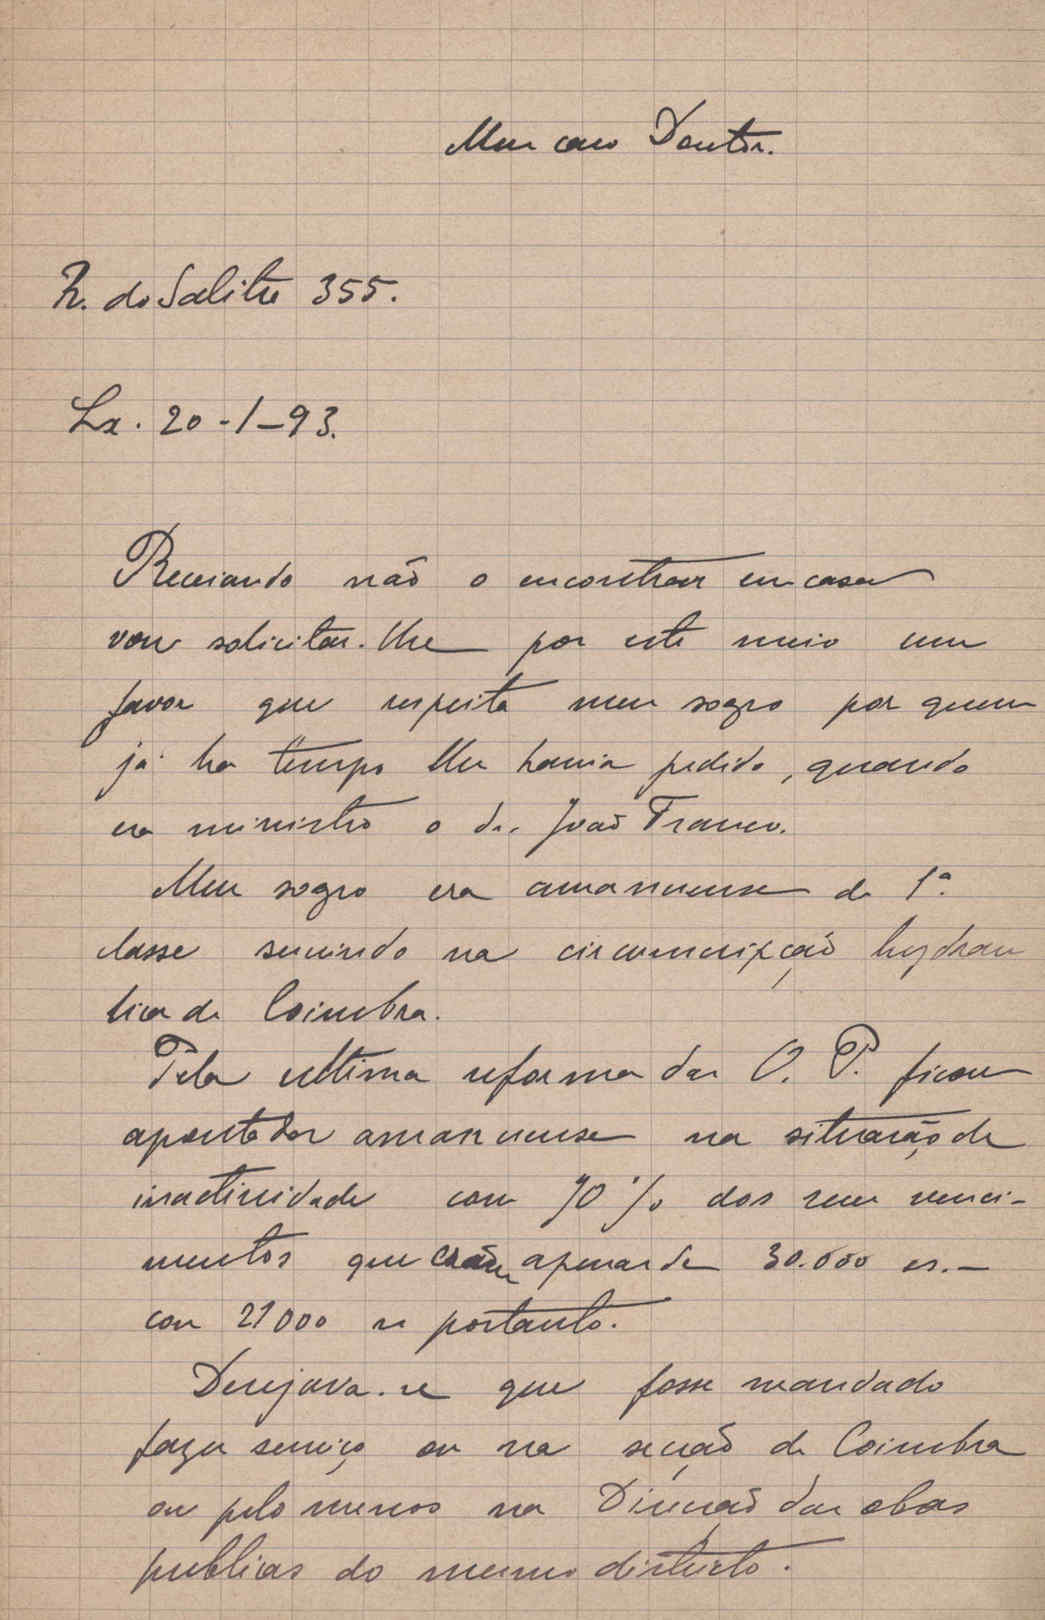 Meu caro Doutor.
R. do Salitre 355.
Lx. 20-1-93.
Receiando não o encontrar em casa
vou solicitar-lhe por este meio um
favor que respeita meu sogro por quem
já ha tempo lhe havia pedido, quando
era ministro o dr. João Franco.
Meu sogro era amanuense de 1ª
classe servindo na circumscripção hydrau
lica de Coimbra.
Pela ultima reforma das O. P. ficou
apontador amanuense na situação de
inactividade com 70% dos seus venci-
mentos que eram apenas de 30.000 rs.-
com 21000 rs portanto.
Desejava-se que fosse mandado
fazer serviço ou na secção de Coimbra
ou pelo menos na Direcção das obras
publicas do mesmo districto.